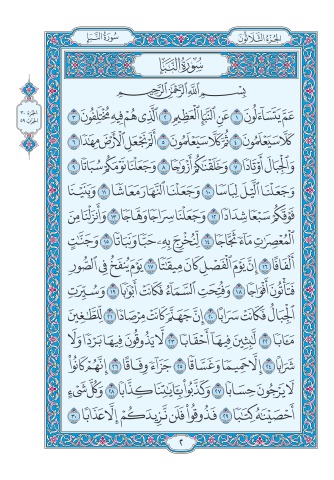 سُورَةُ النَّبَإِ
الجُزءُ الثَّلَاثُونَ
سُورَةُ النَّبَإِ
بِسْمِ اللَّهِ الرَّحْمَٰنِ الرَّحِيمِ
عَمَّ يَتَسَاءَلُونَ ١ عَنِ النَّبَإِ الْعَظِيمِ ٢ الَّذِي هُمْ فِيهِ مُخْتَلِفُونَ ٣
كَلَّا سَيَعْلَمُونَ ٤ ثُمَّ كَلَّا سَيَعْلَمُونَ ٥ أَلَمْ نَجْعَلِ الْأَرْضَ مِهَادًا ٦
وَالْجِبَالَ أَوْتَادًا ٧ وَخَلَقْنَاكُمْ أَزْوَاجًا ٨ وَجَعَلْنَا نَوْمَكُمْ سُبَاتًا ٩
وَجَعَلْنَا اللَّيْلَ لِبَاسًا ١٠ وَجَعَلْنَا النَّهَارَ مَعَاشًا ١١ وَبَنَيْنَا
فَوْقَكُمْ سَبْعًا شِدَادًا ١٢ وَجَعَلْنَا سِرَاجًا وَهَّاجًا ١٣ وَأَنزَلْنَا مِنَ
الْمُعْصِرَاتِ مَاءً ثَجَّاجًا ١٤ لِّنُخْرِجَ بِهِ حَبًّا وَنَبَاتًا ١٥ وَجَنَّاتٍ
أَلْفَافًا ١٦ إِنَّ يَوْمَ الْفَصْلِ كَانَ مِيقَاتًا ١٧ يَوْمَ يُنفَخُ فِي الصُّورِ
فَتَأْتُونَ أَفْوَاجًا ١٨ وَفُتِحَتِ السَّمَاءُ فَكَانَتْ أَبْوَابًا ١٩ وَسُيِّرَتِ
الْجِبَالُ فَكَانَتْ سَرَابًا ٢٠ إِنَّ جَهَنَّمَ كَانَتْ مِرْصَادًا ٢١ لِّلطَّاغِينَ
مَآبًا ٢٢ لَّابِثِينَ فِيهَا أَحْقَابًا ٢٣ لَّا يَذُوقُونَ فِيهَا بَرْدًا وَلَا
شَرَابًا ٢٤ إِلَّا حَمِيمًا وَغَسَّاقًا ٢٥ جَزَاءً وِفَاقًا ٢٦ إِنَّهُمْ كَانُوا
لَا يَرْجُونَ حِسَابًا ٢٧ وَكَذَّبُوا بِآيَاتِنَا كِذَّابًا ٢٨ وَكُلَّ شَيْءٍ
أَحْصَيْنَاهُ كِتَابًا ٢٩ فَذُوقُوا فَلَن نَّزِيدَكُمْ إِلَّا عَذَابًا ٣٠
الجزء ٣٠
الحزب ٥٩
٢